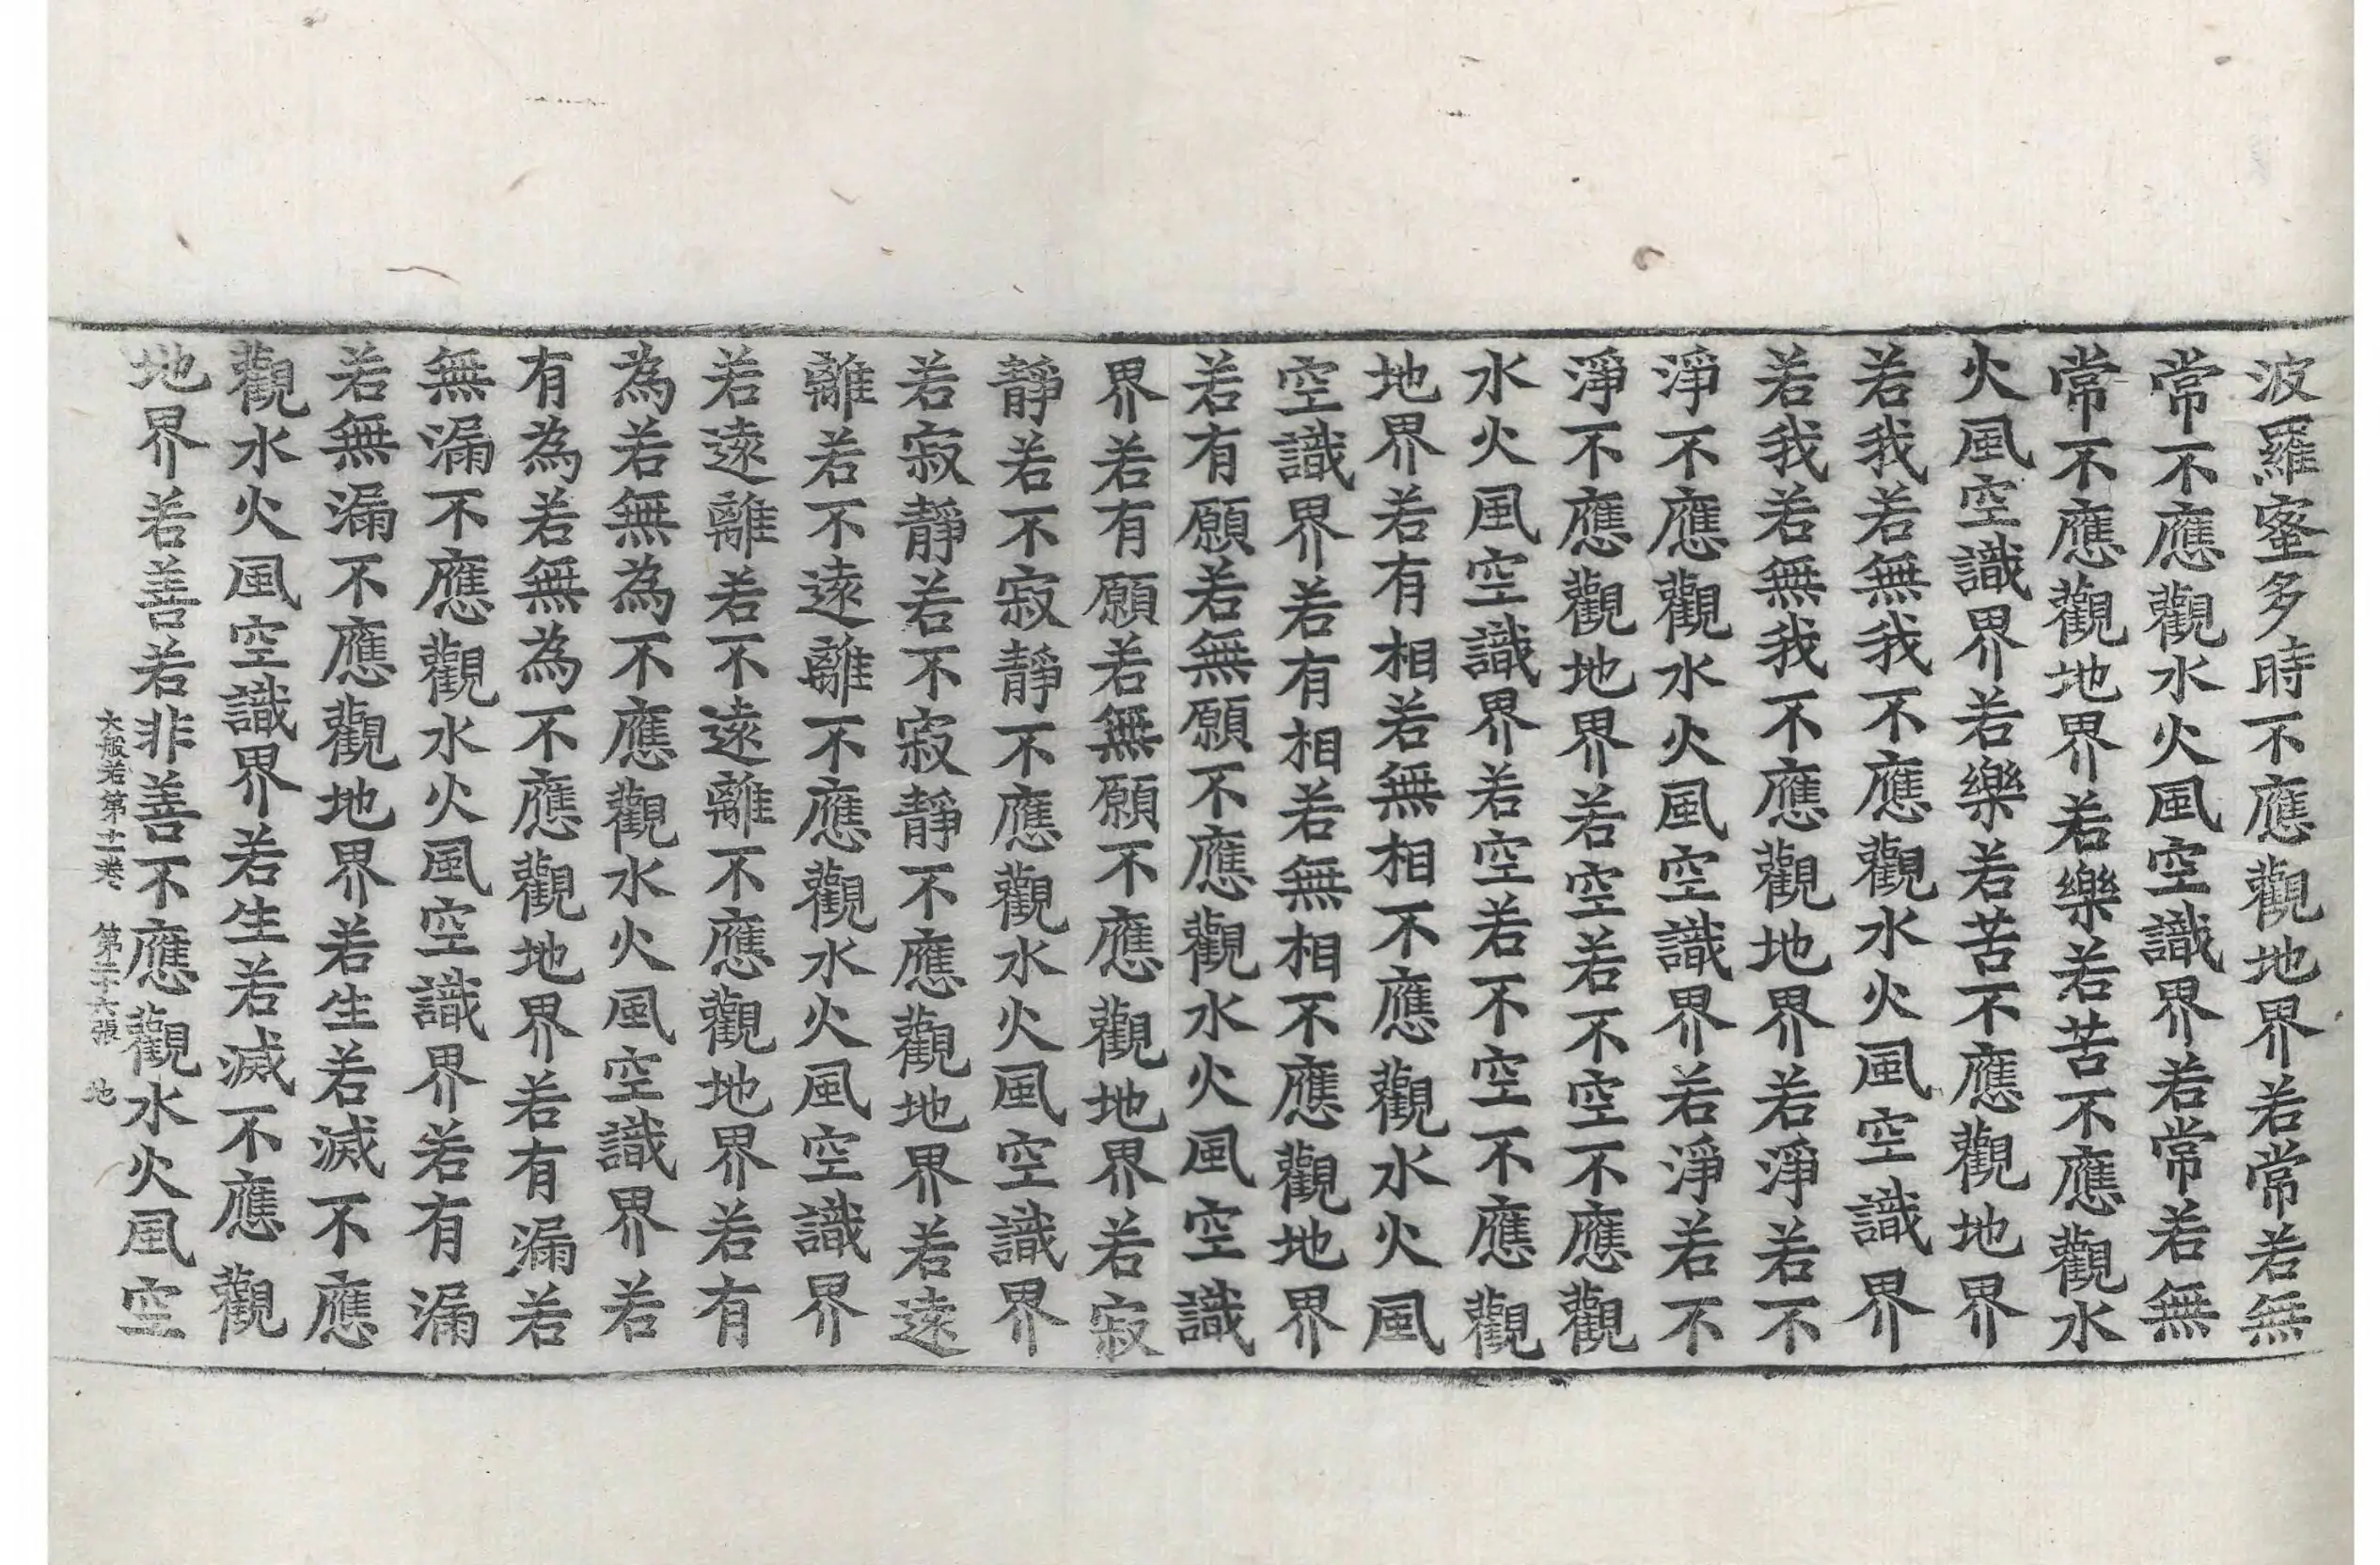 波羅蜜多時不應觀地界若常若無
常不應觀水火風空識界若常若無
常不應觀地界若樂若苦不應觀水
火風空識界若樂若苦不應觀地界
若我若無我不應觀水火風空識界
若我若無我不應觀地界若淨若不
淨不應觀水火風空識界若淨若不
淨不應觀地界若空若不空不應觀
水火風空識界若空若不空不應觀
地界若有相若無相不應觀水火風
空識界若有相若無相不應觀地界
若有願若無願不應觀水火風空識
界若有願若無願不應觀地界若寂
靜若不寂靜不應觀水火風空識界
若寂靜若不寂靜不應觀地界若遠
離若不遠離不應觀水火風空識界
若遠離若不遠離不應觀地界若有
為若無為不應觀水火風空識界若
有為若無為不應觀地界若有漏若
無漏不應觀水火風空識界若有漏
若無漏不應觀地界若生若滅不應
觀水火風空識界若生若滅不應觀
地界若善若非善不應觀水火風空
大般若第十二卷 第二十六張 地